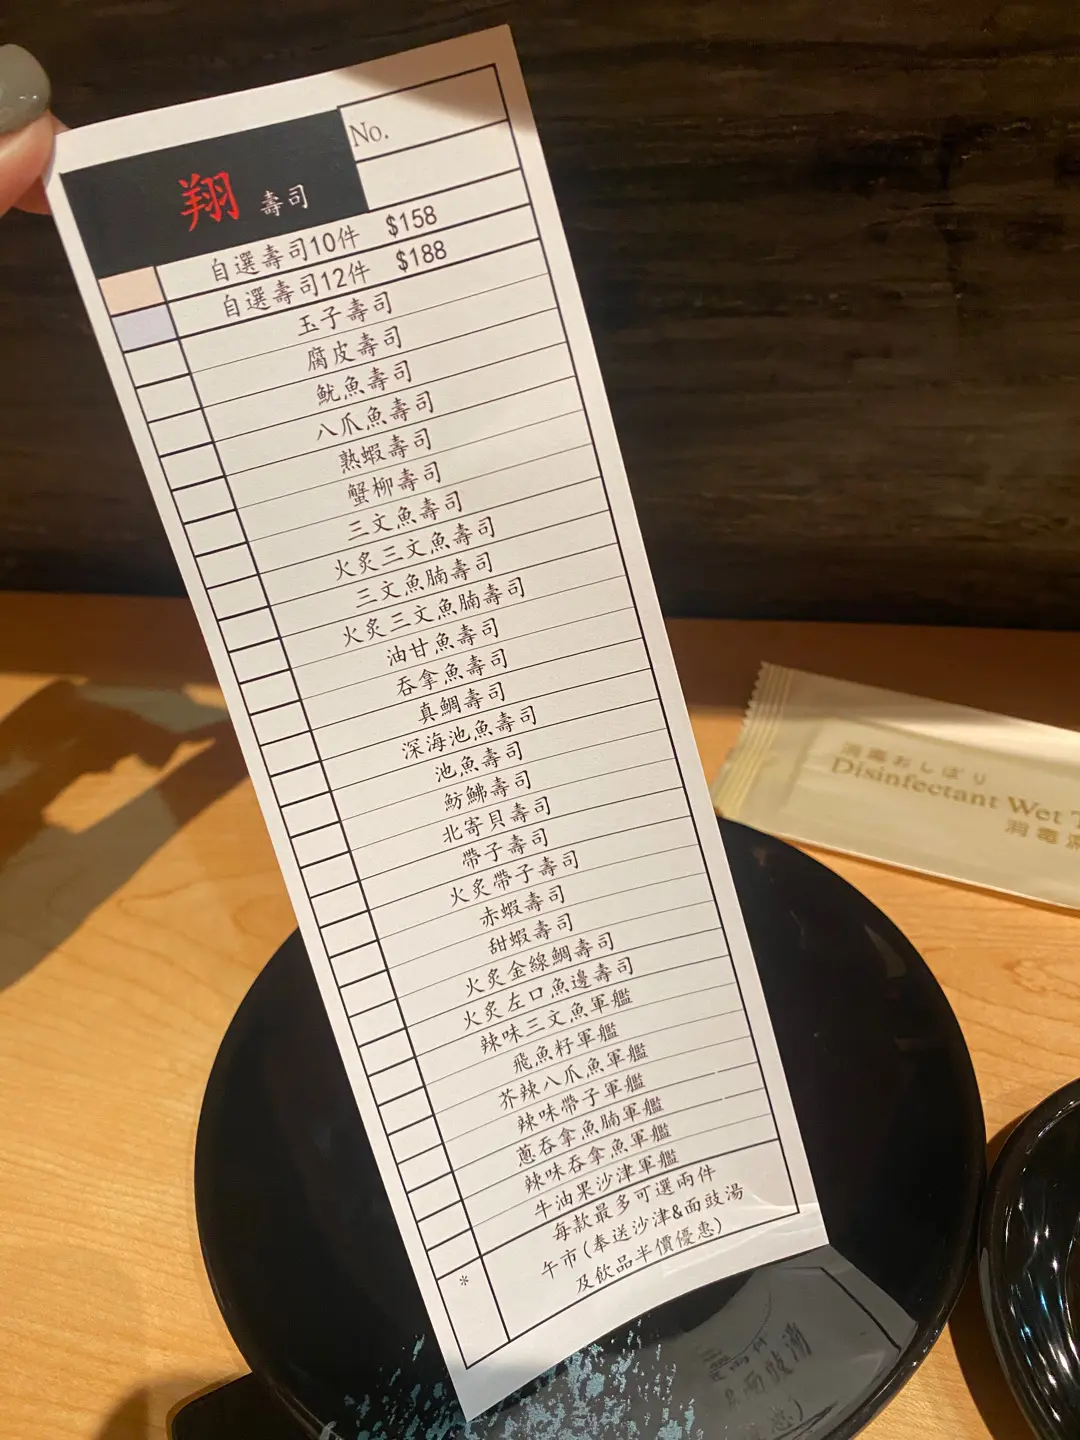 No.
翔 壽司
自選壽司10件 $158
自選壽司12件 $188
玉子壽司
腐皮壽司
魷魚壽司
八爪魚壽司
熟蝦壽司
蟹柳壽司
三文魚壽司
火炙三文魚壽司
三文魚腩壽司
火炙三文魚腩壽司
油甘魚壽司
吞拿魚壽司
真鯛壽司
深海池魚壽司
池魚壽司
魴鮄壽司
北寄貝壽司
帶子壽司
火炙帶子壽司
赤蝦壽司
甜蝦壽司
火炙金線鯛壽司
火炙左口魚邊壽司
辣味三文魚軍艦
飛魚籽軍艦
芥辣八爪魚軍艦
辣味帶子軍艦
蔥吞拿魚腩軍艦
辣味吞拿魚軍艦
牛油果沙津軍艦
每款最多可選兩件
* 午市(奉送沙津&面豉湯
及飲品半價優惠)
消毒おしぼり
Disinfectant Wet
消毒